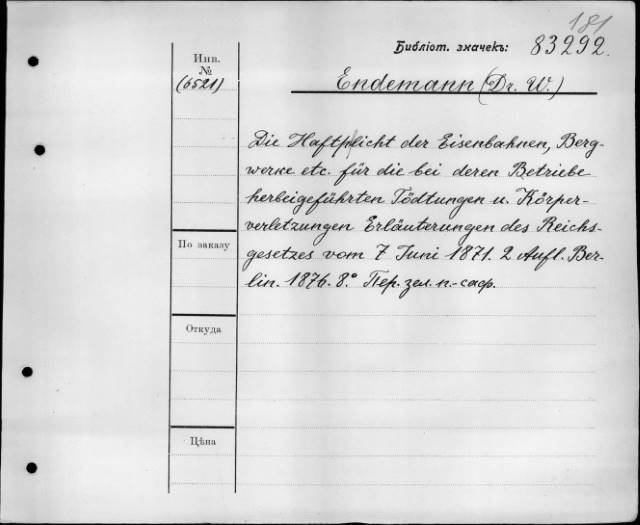 181
Библіот. значекъ: 83292.
Инв.
№
(6521)
Endemann (Dr. W.)
Die Haftpflicht der Eisenbahnen, Berg-
werke etc. für die bei deren Betriebe
herbeigeführten Tödtungen u. Körper-
verletzungen Erläuterungen des Reichs-
gesetzes vom 7 Juni 1871. 2 Aufl. Ber-
lin. 1876. 8.° Пер. зел. п.-саф.
По заказу
Откуда
Цѣна